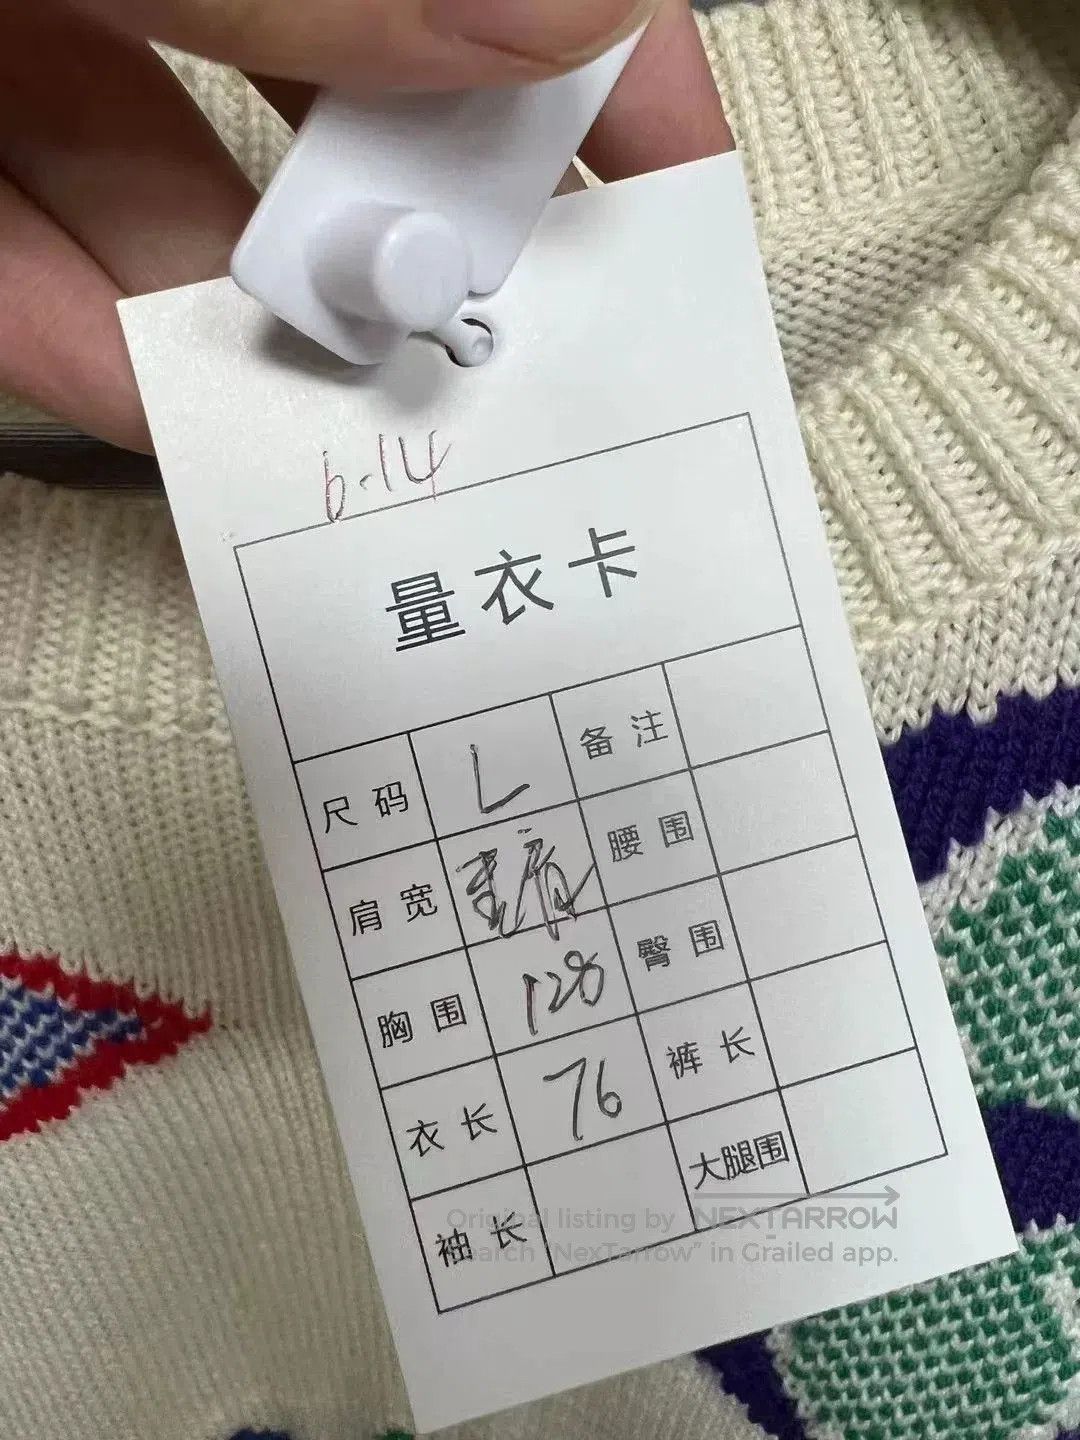 6.14
量衣卡
尺码 L 备注
肩宽 腰围
胸围 128 臀围
衣长 76 裤长
袖长 大腿围
Original listing by NEXTARROW
Search "NexTarrow" in Grailed app.